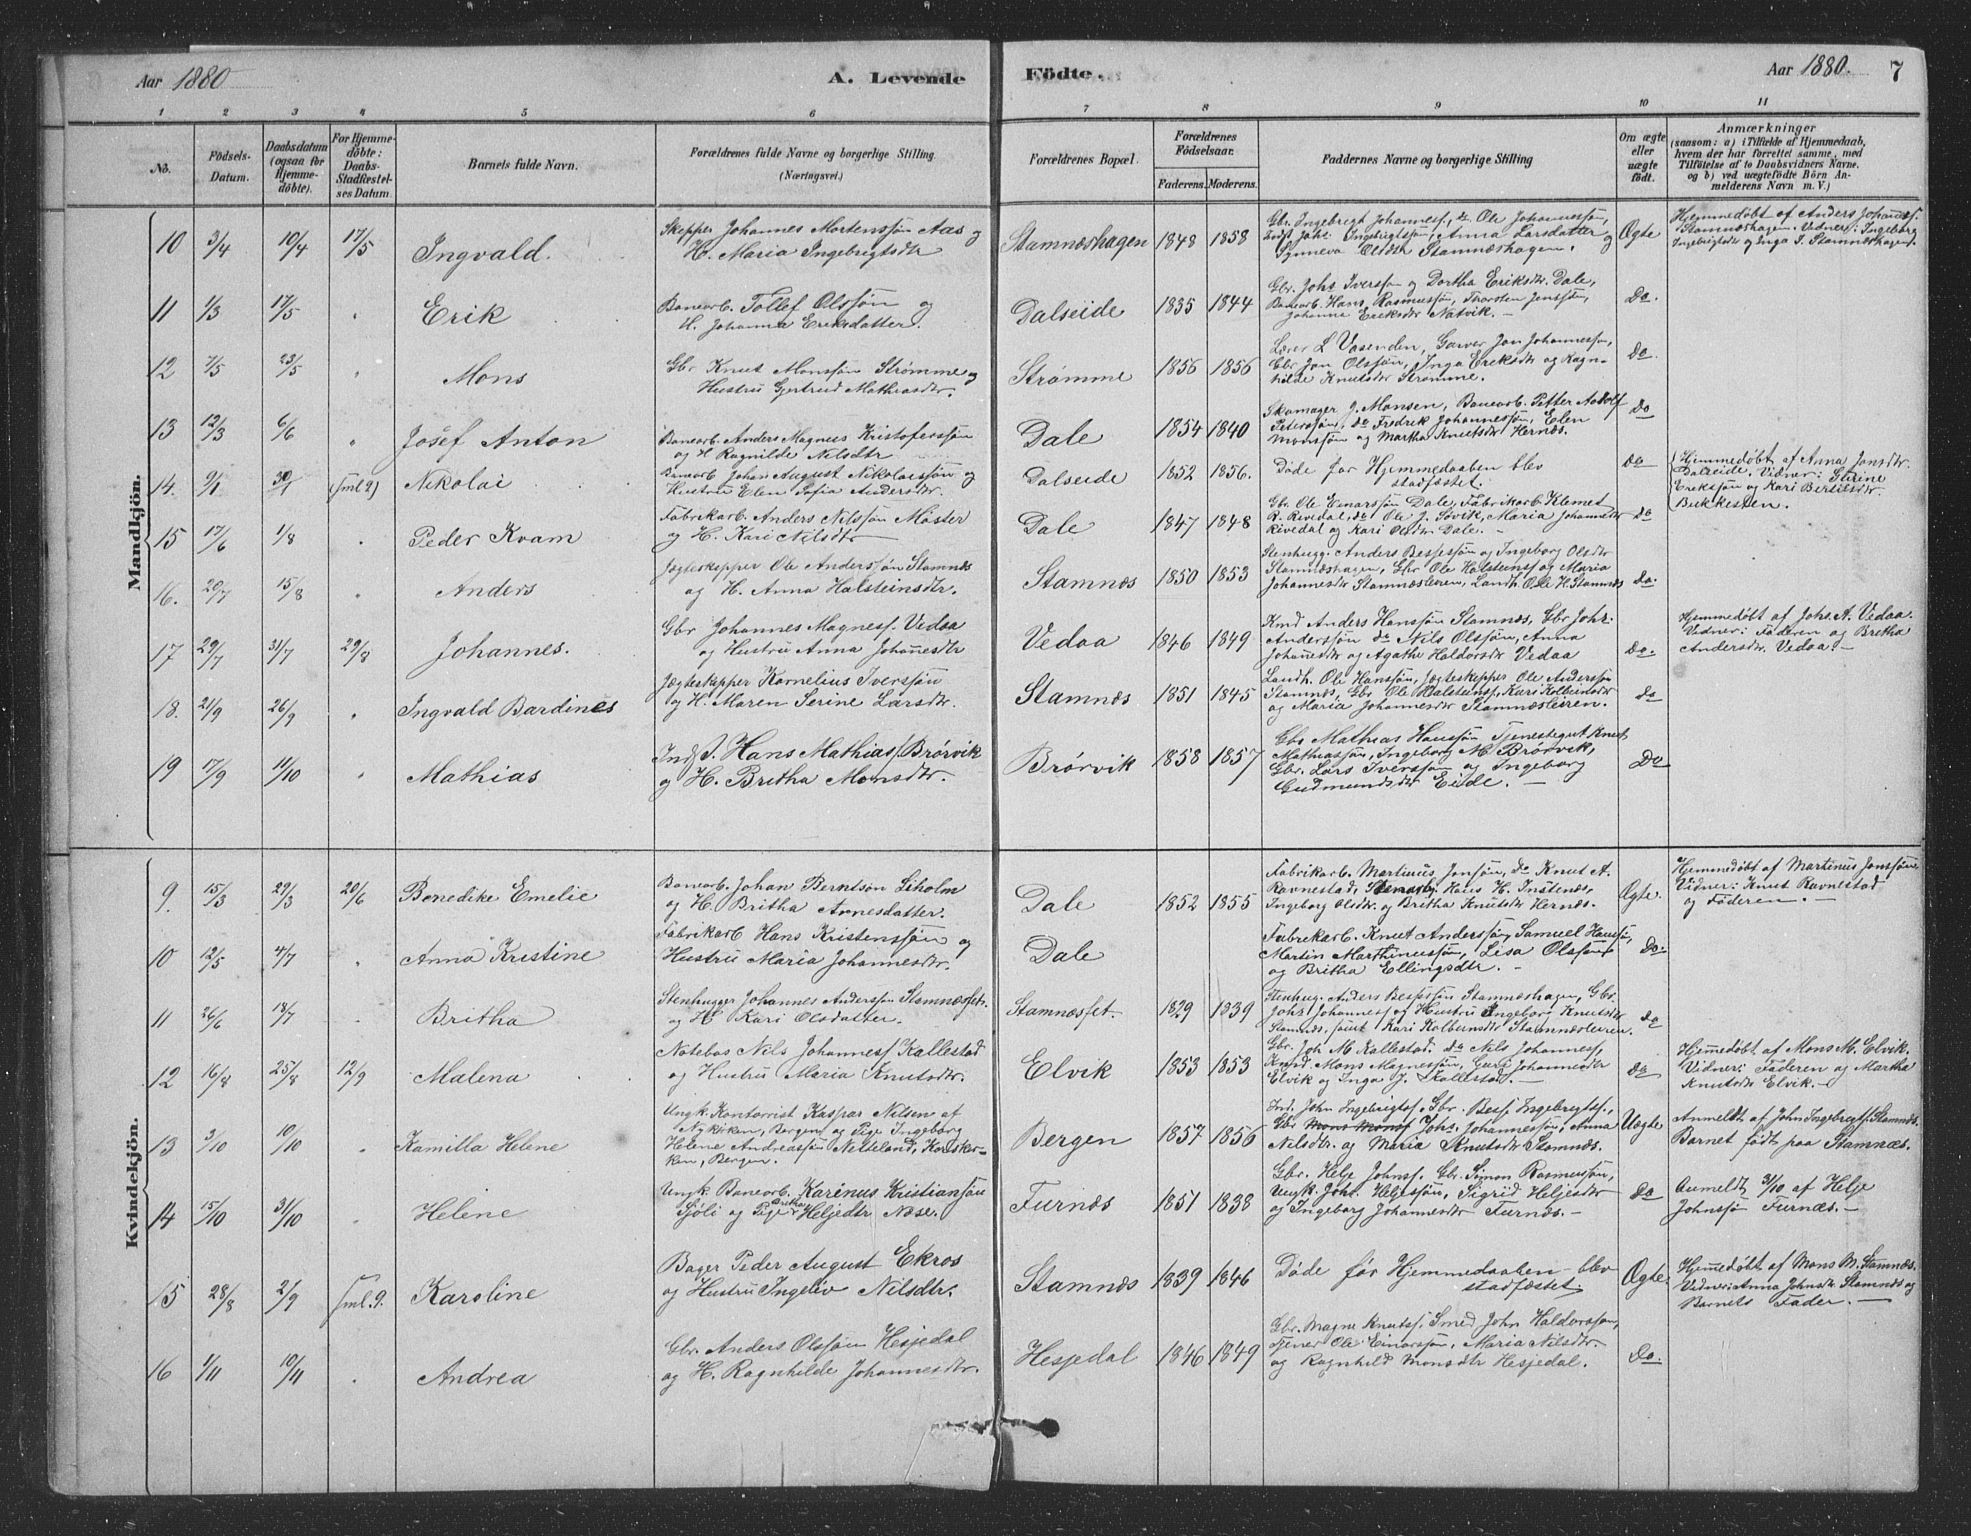 Aar 1880 A. Levende Födte. Aar 1880. 7
1 2 3 4 5 6 7 8 9 10 11
No.
Födsels-Datum.
Daabsdatum (ogsaa for Hjemmedöbte).
For Hjemmedöbte: Daabs-Stadfæstelses Datum
Barnets fulde Navn.
Forældrenes fulde Navne og borgerlige Stilling (Næringsvei.)
Forældrenes Bopæl.
Forældrenes Födselsaar.
Faderens. Moderens.
Faddernes Navne og borgerlige Stilling
Om ægte eller uægte födt.
Anmærkninger
(saasom: a) i Tilfælde af Hjemmedaab,
hvem der har forrettet samme, med
Tilföielse af to Daabsvidners Navne,
og b) ved uægtefödte Börn Anmelderens Navn m. V.)
Mandkjön.
10 3/4 10/4 17/5 Ingvald.
Skepper Johannes Mortenssøn Aas og
H. Maria Ingebrigtsdtr
Stamnæshagen 1848 1858
Gbr. Ingebrigt Johanness., do. Ole Johannessøn,
Johs. Ingebrigtssøn, Anna Larsdatter og
Synneva Olsdtr Stamnæshagen.
Ægte
Hjemmedøbt af Anders Johanness.
Stamnæshagen. Vidner: Ingeborg
Ingebrigtsdtr og Inga J. Stamnæshagen.
11 1/3 17/5 " Erik
Banearb. Tollef Olssøn og
H. Johanna Eriksdatter.
Dalseide 1835 1844
Gbr. Johs Iverssøn og Dortha Eriksdtr Dale,
Banearb. Hans Rasmussøn, Thorsten Jenssøn,
Johanna Eriksdtr Natvik. —
Do.
12 7/5 23/5 " Mons
Gbr Knut Monssøn Strømme og
Hustru Gjertrud Mathiasdtr.
Strømme 1856 1856
Lærer L Vasenden, Garver Jon Johannessøn,
Gbr Jon Olssøn, Inga Eriksdtr og Ragnhilde Knutsdtr Strømme.
Do.
13 12/3 6/6 " Josef Anton
Banearb. Anders Magnus Kristoferssøn
og H Ragnilde Nilsdtr
Dale 1854 1840
Skomager J. Monsen, Banearb. Petter Adolf
Peterssøn, do Fredrik Johannessøn, Elen
Monssøn og Martha Knutsdtr Hernæs.
Do
14. 9/1 30/1 (sml 9) Nikolai
Banearb Johan August Nikolaissøn og
Hustru Elen Sofia Andersdtr.
Dalseide 1852 1856.
Døde før Hjemmedaaben blev
stadfæstet.
Do
Hjemmedøbt af Anna Jonsdtr.
Dalseide, Vidner: Serine
Erikssøn og Kari Bertilsdtr
Bekkesten.
15 17/6 1/8 " Peder Kvam
Fabrikarb. Anders Nilssøn Møster
og H. Kari Nilsdtr
Dale 1847 1848
Gbr Ole Einarssøn Dale, Fabrikarb Klemet
R. Rivedal, do Ole J. Sørvik, Maria Johannesdtr
Rivedal og Kari Olsdtr Dale. —
Do
16. 20/7 15/8 " Anders
Jægteskepper Ole Anderssøn Stamnæs
og H. Anna Halsteinsdtr.
Stamnæs 1850 1853
Stenhugg. Anders Bessessøn og Ingeborg Olsdtr
Stamnæshagen, Gbr Ole Halsteinss og Maria
Johannesdtr Stamnæsleiren, Landh. Ole H. Stamnæs
Do.
17 29/7 31/7 29/8 Johannes.
Gbr Johannes Magness. Vedaa
og Hustru Anna Johannesdtr
Vedaa 1846 1849
Kmd Anders Hanssøn Stamnæs, Gbr Johs.
Anderssøn do Nils Olssøn, Anna
Johannesdtr og Agathe Haldorsdtr Vedaa
Do.
Hjemmedøbt af Johs. A. Vedaa.
Vidner: Faderen og Bretha
Andersdtr. Vedaa. —
18. 21/9 26/9 " Ingvald Bardines
Jægteskepper Kornelius Iverssøn
og H. Maren Serine Larsdtr.
Stamnæs 1851 1845
Landh. Ole Hanssøn, Jægteskepper Ole Anderssøn
Stamnæs, Gbr Ole Halsteinss, Kari Kolbeinsdtr
og Maria Johannesdtr Stamnæsleiren.
Do
19 17/9 11/10 " Mathias
Ind. J. Hans Mathiass. Brørvik
og H. Britha Monsdtr.
Brørvik 1858 1857
Gbr Mathias Hanssøn Tjenestegut Knut
Mathiassøn, Ingeborg M. Brørvik,
Gbr. Lars Iverssøn og Ingeborg
Gudmundsdtr Eide. —
Do
Kvindekjön.
9. 15/3 29/3 20/6 Benedike Emelie
Banearb. Johan Berntsøn Liholm
og H. Britha Arnesdatter.
Dale 1852 1855
Fabrikarb. Martinus Jonsøn, do Knut A.
Ravnestad, Stenarb. Hans H. Instenæs,
Ingeborg Olsdtr. og Britha Knutsdtr Hernæs.
Ægte.
Hjemmdøbt af Martinus Jonssøn.
Vidner: Knut Ravnestad
og Faderen. —
10 12/5 4/7 " Anna Kristine
Fabrikarb Hans Kristenssøn og
Hustru Maria Johannesdtr.
Dale
Fabrikarb. Knut Anderssøn, Samuel Hanssøn,
Martin Marthinussøn, Lisa Olssøn
og Britha Ellingsdtr. —
Do.
11 26/6 18/7 " Britha
Stenhugger Johannes Anderssøn Stamnæsfet.
og H Kari Olsdatter.
Stamnæsfet. 1829 1839
Stenhug. Anders Bessessøn Stamnæshagen, Gbr.
Johs Johanness og Hustru Ingeborg Knutsdtr
Stamnæs, samt Kari Kolbeinsdtr Stamnæsleiren.
Do
12 16/8 25/8 12/9 Malena
Notebas Nils Johanness Kallestad
og Hustru Maria Knutsdtr.
Elvik 1853 1853
Gbr. Joh M. Kallestad. do Nils Johanness,
Kmd. Mons Magnessøn, Guri Johannesdtr
Elvik og Inga J. Kallestad. —
Do
Hjemmedøbt af Mons M. Elvik.
Vidner: Faderen og Martha
Knutsdtr Elvik. —
13 3/10 10/10 " Kamilla Helene
Ungk. Kontorrist Kaspar Nilsen af
Nykirken, Bergen og Pige Ingeborg
Helene Andreassøn Netteland, Korskirken, Bergen.
Bergen 1857 1856
Ind. John Ingebrigtss. Gbr. Besse Ingebrigtss.,
Gbr Mons Monss Johs. Johannessøn, Anna
Nilsdtr. og Maria Knutsdtr Stamnæs.
Uægte
Anmeldt af John Ingebrigtss. Stamnæs.
Barnet født paa Stamnæs.
14 15/10 31/10 " Helene
Ungk. Banearb. Karinus Kristiansøn
Sjöli og Pige Heljedtr Nese.
Furnæs 1851 1838
Gbr. Helje Johnss. Gbr. Simon Rasmussøn,
Ungk. Johs. Heljessøn, Sigrid Heljesdtr
og Ingeborg Johannesdtr Furnæs. —
Do
Anmeldt 31/10 af Helje
Johnssø Furnæs. —
15 28/8 2/9 sml. 9. Karoline
Bager Peder August Ekros
og Hustru Ingeliv Nilsdtr.
Stamnæs 1839 1846
Døde før Hjemmedaaben blev
stadfæstet
Ægte.
Hjemmedøbt af Mons M. Stamnæs.
Vidner: Anna Johnsdtr. Stamnæs og
Barnets Fader. —
16 1/11 10/11 " Andrea
Gbr. Anders Olssøn Hesjedal
og H. Ragnhilde Johannesdtr.
Hesjedal 1846 1849
Gbr. Magne Knutss. Smed John Haldorssøn,
Tjener Ole Einarssøn, Maria Nilsdtr.
og Ragnhild Monsdtr Hesjedal.
Do.